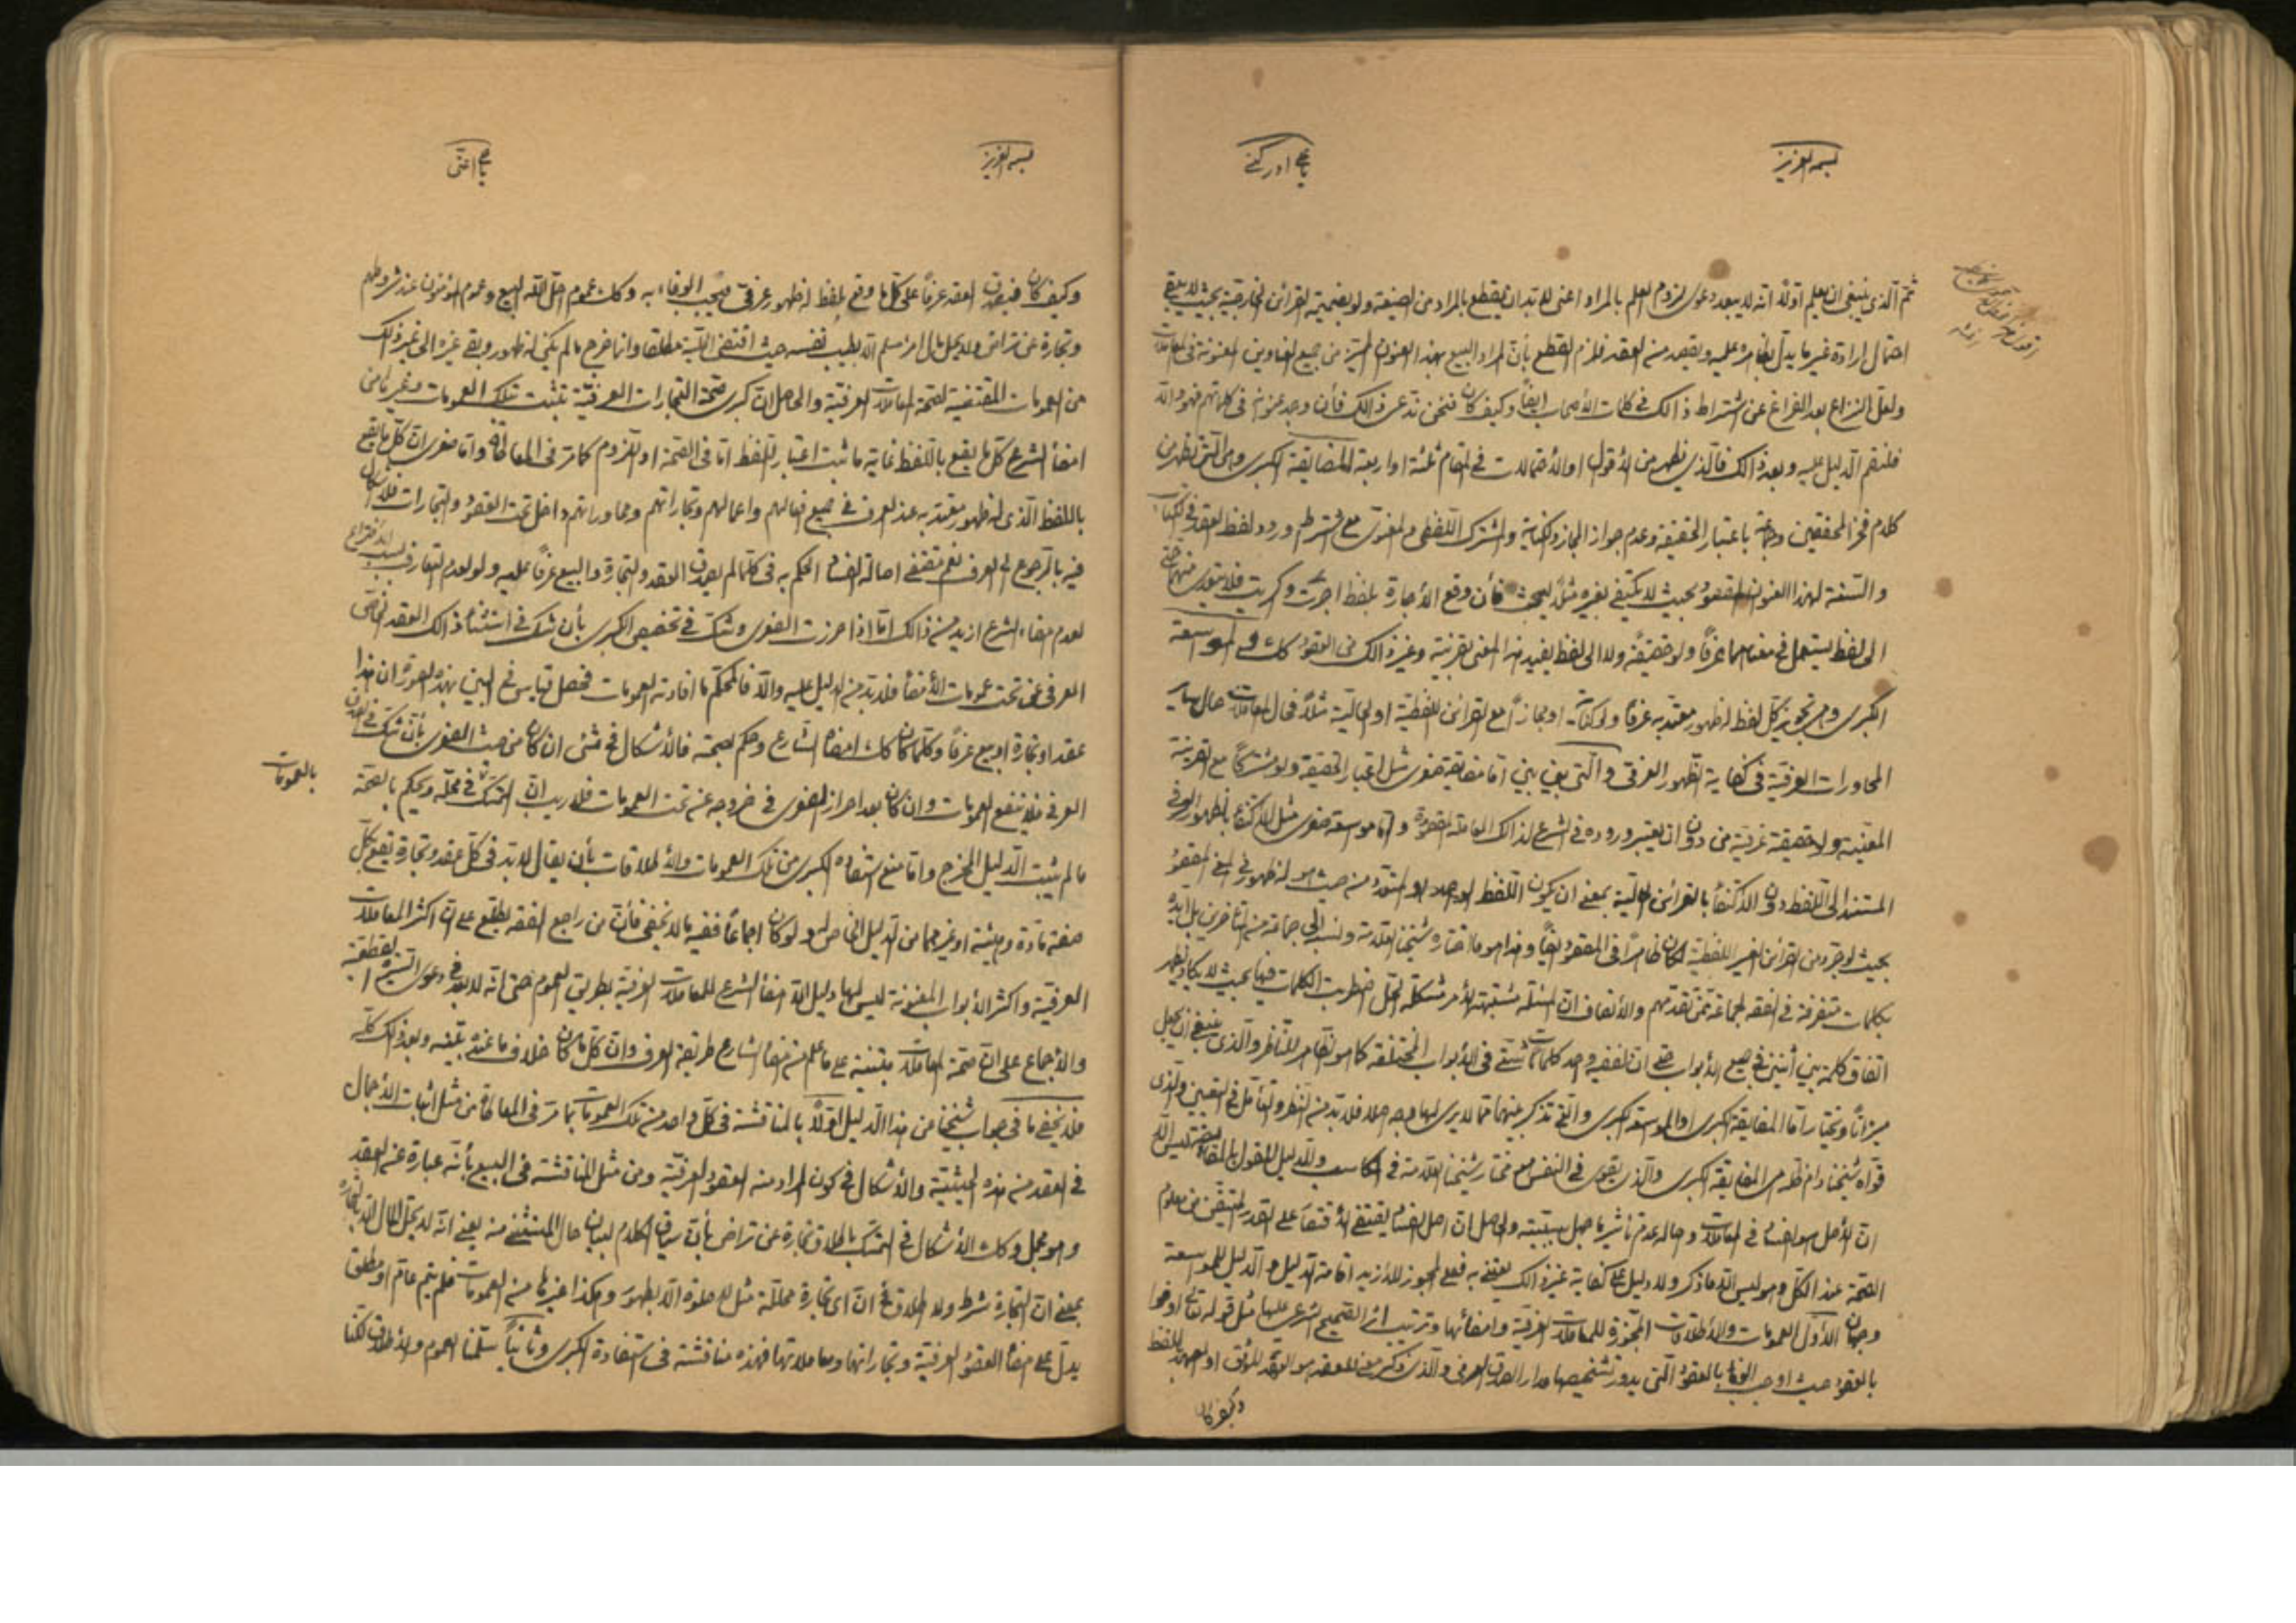 بسمه العزيز
ثم الذى ينبغى ان يعلم اولا انه لا يبعد دعوى لزوم العلم بالمراد اعنى لا بد ان يقطع بالمراد من الصيغة ولو بضميمة القرائن الخارجية بحيث لا يبقى
احتمال ارادة غير ما يدل ظاهره عليه ويقصد منه العقد فلزم القطع بأن المراد البيع بهذا العنوان المتميز من جميع العناوين المعنونة فى المعاملات
ولعل النزاع بعد الفراغ عن اشتراط ذالك فى كلمات الأصحاب ايضاً وكيف كان فنحن ندعى ذالك فأن وجد عنوانه فى كلماتهم فهو والا
فلنقم الدليل عليه وبعد ذالك فالذى يظهر من الأقوال او الأحتمالات فى المقام ثلثة او اربعة المضايقة الكبرى وهى التى تظهر من
كلام فخر المحققين باعتبار الحقيقة وعدم جواز المجاز والكناية والمشترك اللفظى والمعنوى مع اشتراط ورود لفظ العقد فى الكتاب
والسنة لهذا العنوان المقصود بحيث لا يكتفى بغيره مثلاً بحيث فأن وقع الأجارة بلفظ اجرت وكريت فلا يتعدى منهما
الى لفظ يستعمل فى معناهما عرفاً ولو حقيقة ولا الى لفظ يفيد هذا المعنى بقرينة وغير ذالك من العقود كك والموسعة
الكبرى وهى تجويز كل لفظ له ظهور معتد به عرفاً ولو كناية او مجازاً مع القرائن اللفظية او الحالية مثلاً فحال المعاملات حال ساير
المحاورات العرفية فى كفاية الظهور العرفى والتى بين بين اما مضايقة صغرى مثل اعتبار الحقيقة ولو مشتركاً مع القرينة
المعينة ولو حقيقة عرفية من دون ان يعتبر وروده فى الشرع لذالك المعاملة المقصودة واما موسعة صغرى مثل الاكتفاء بالظهور العرفى
المستند الى اللفظ دون الاكتفاء بالقرائن الحالية بمعنى ان يكون اللفظ الواحد او المتعدد من حيث هو له ظهور فى المعنى المقصود
بحيث لو جرد من القرائن الغير اللفظية لكان ظاهراً فى المقصود ايضاً وهذا هو ما اختاره شيخنا العلامة ونسبه الى جماعة من المتأخرين بل ايده
بكلمات متفرقة فى الفقه لجماعة ممن تقدمهم والأنصاف ان المسئلة مشتبهة الأمر مشكلة الحل اضطربت الكلمات فيها بحيث لا يكاد يظهر
اتفاق كلمة بين اثنين فى جميع الأبواب حتى ان للفقيه واحد كلمات شتى فى الأبواب المختلفة كما هو ظاهر للناظر والذى ينبغى ان يجعل
ميزاناً ونختار اما المضايقة الكبرى او الموسعة الكبرى والتى تذكر بينهما مما لا يرى لها وجه اصلا فلا بد من النظر والتأمل فى التعيين والذى
قواه شيخنا دام ظله هى المضايقة الكبرى والذى يقوى فى النفس مع مختار شيخنا العلامة فى المكاسب والدليل للقول بالمضايقة ليس الا
ان الأصل هو الفساد فى المعاملات واصالة عدم تأثير ما جعل سببيته والحاصل ان اصل الفساد يقتضى الأقتصار على القدر المتيقن من معلوم
الصحة عند الكل وهو ليس الا ما ذكر ولا دليل على كفاية غير ذالك يعتنى به فعلى المجوز للأزيد اقامة الدليل والدليل للموسعة
وجهان الأول العمومات والأطلاقات المجوزة للمعاملات العرفية وامضائها وترتيب اثر الصحيح الشرعى عليها مثل قوله تعالى اوفوا
بالعقود حيث اوجب الوفاء بالعقود التى يدور تشخيصها مدار الصدق العرفى والذى ذكر من معنى العقد هو العهد الموثق او العهد باللفظ
وكيف كان
بسمه العزيز
وكيف كان فيصدق العقد عرفاً على كل ما وقع بلفظ له ظهور عرفى فيجب الوفاء به وكك عموم احل الله البيع وعموم المؤمنون عند شروطهم
وتجارة عن تراض ولا يحل مال امرء مسلم الا بطيب نفسه حيث اقتضى الحلية مطلقا وانما خرج ما لم يكن له ظهور وبقى غيره الى غير ذالك
من العمومات المقتضية لصحة المعاملات العرفية والحاصل ان كبرى صحة التجارات العرفية تثبت بتلك العمومات وغيرها من
امضاء الشرع كل ما يقع باللفظ غاية ما ثبت اعتبار اللفظ اما فى الصحة او اللزوم كما مر فى المعاطاة واما صغرى ان كل ما يقع
باللفظ الذى له ظهور معتد به عند العرف فى جميع افعالهم واعمالهم وتجاراتهم ومحاوراتهم داخل تحت العقود والتجارات فلا اشكال
فيه بالرجوع الى العرف نعم مقتضى اصالة الفساد الحكم به فى كلما لم يصدق العقد والتجارة والبيع عرفاً عليه ولو لعدم التعارف بسبب الأختراع
لعدم امضاء الشرع ازيد من ذالك اما اذا احرزت الصغرى وشك فى تخصيص الكبرى بأن شك فى استثناء ذالك العقد الخاص
العرفى عن تحت عمومات الأمضاء فلا بد من الدليل عليه والا فالمحكم ما افادته العمومات فحصل قياس فى البين بهذه الصورة ان هذا
عقد او تجارة او بيع عرفاً وكلما كان كك امضاه الشارع وحكم بصحته فالأشكال فى شئ ان كان من حيث الصغرى بأن شك فى الصدق
العرفى فلا ينفع العمومات وان كان بعد احراز الصغرى فى خروجه عنه تحت العمومات فلا ريب ان التمسك فى محله ويحكم بالصحة
بالعمومات
ما لم يثبت الدليل المخرج واما منع استفادة الكبرى من تلك العمومات والأطلاقات بأن يقال لا بد فى كل عقد وتجارة يقع بكل
صيغة مادة وهيئة او غيرهما من الدليل الخاص له ولو كان اجماعاً ففيه ما لا يخفى فأن من راجع الفقه يطلع على ان اكثر المعاملات
العرفية واكثر الأبواب المعنونة ليس لها دليل الا امضاء الشرع للمعاملات العرفية بطريق العموم حتى انه لا يبعد دعوى السيرة القطعية
والأجماع على ان صحة المعاملات مبتنية على ما علم من امضاء الشارع طريقة العرف وان كل ما كان خلاف ما عنده بينه وبعد ذالك كله
فلا يخفى ما فى جواب شيخنا من هذا الدليل اولاً بالمناقشة فى كل واحد من تلك العمومات بما مر فى المعاطاة من مثل اثبات الأجمال
فى العقد من هذه الحيثية والأشكال فى كون المراد منه العقود العرفية ومن مثل المناقشة فى البيع بأنه عبارة عن العقد
وهو مجمل وكك الأشكال فى التمسك باطلاق تجارة عن تراض بأن سياق الكلام لبيان حال المستثنى منه يعنى انه لا يحل المال الا بالتجارة
بمعنى ان التجارة شرط ولا اطلاق فى ان اى تجارة محللة مثل لا صلوة الا بطهور وهكذا غيرها من العمومات فلم يتم عام او مطلق
يدل على امضاء العقود العرفية وتجاراتها ومعاملاتها فهذه مناقشة فى استفادة الكبرى وثانياً سلمنا العموم والأطلاق لكنا